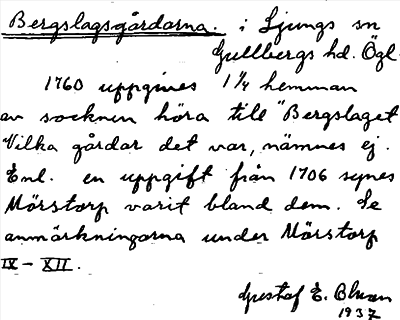 Bergslagsgårdarna. i Ljungs sn
Gullbergs hd. Ögl.
1760 uppgives 1 1/4 hemman
av socknen höra till "Bergslaget
Vilka gårdar det var, nämnes ej.
Enl. en uppgift från 1706 synes
Mörstorp varit bland dem. Se
anmärkningarna under Mörstorp
IX - XII.
Gustaf E. Bluun
1937